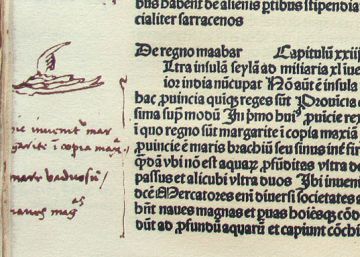 bus habent de alienis ꝑtibus stipendia
cialiter sarracenos
De regno maabar Capitulũ xxiij
Ltra insulã seylã ad miliaria xl iue
ior india nũcupat Nõ aũt ẽ insula
hac ꝓuincia quiqꝫ reges sũt Prouicia
sima suꝑ modũ In ꝓmo huiꝰ ꝓuicie rex
ĩ quo regno sũt margarite ĩ copia maxĩa
ꝓuincie ẽ maris brachiũ seu sinus inẽ firm
vbi nõ est aquaꝝ ꝓfũditas vltra
passus et alicubi vltra duos Ibi inueni
Mercatores eni diuersi societates
bũt naues magnas et ꝑuas hoiẽsqꝫ
dũt ad ꝓfundũ aquarũ et capiunt cõchi
inveniunt mar
garite ĩ copia max
mare vadosũ
naves mag